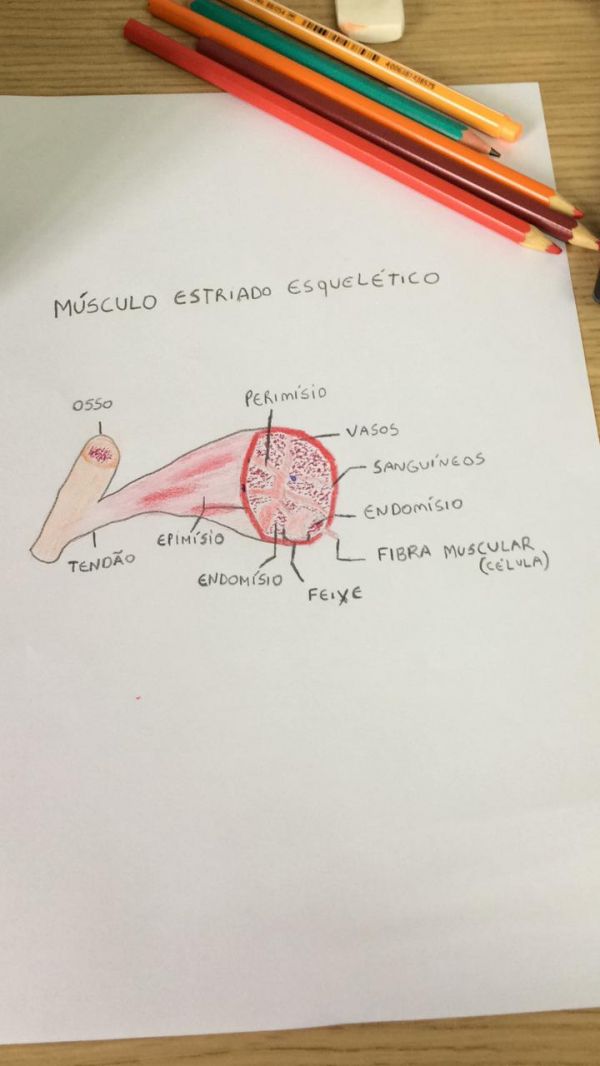 MÚSCULO ESTRIADO ESQUELÉTICO
OSSO
PERIMÍSIO
VASOS
SANGUÍNEOS
ENDOMÍSIO
FIBRA MUSCULAR
(CÉLULA)
EPIMÍSIO
TENDÃO
ENDOMÍSIO
FEIXE